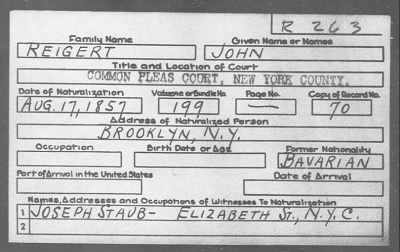 R 263
Family Name Given Name or Names
REIGERT JOHN
Title and Location of Court
COMMON PLEAS COURT, NEW YORK COUNTY.
Date of Naturalization Volume or Bundle No. Page No. Copy of Record No.
AUG. 17, 1857 199 — 70
Address of Naturalized Person
BROOKLYN, N.Y.
Occupation Birth Date or Age Former Nationality
BAVARIAN
Port of Arrival in the United States Date of Arrival
Names, Addresses and Occupations of Witnesses To Naturalization
1 JOSEPH STAUB- ELIZABETH ST., N.Y.C.
2